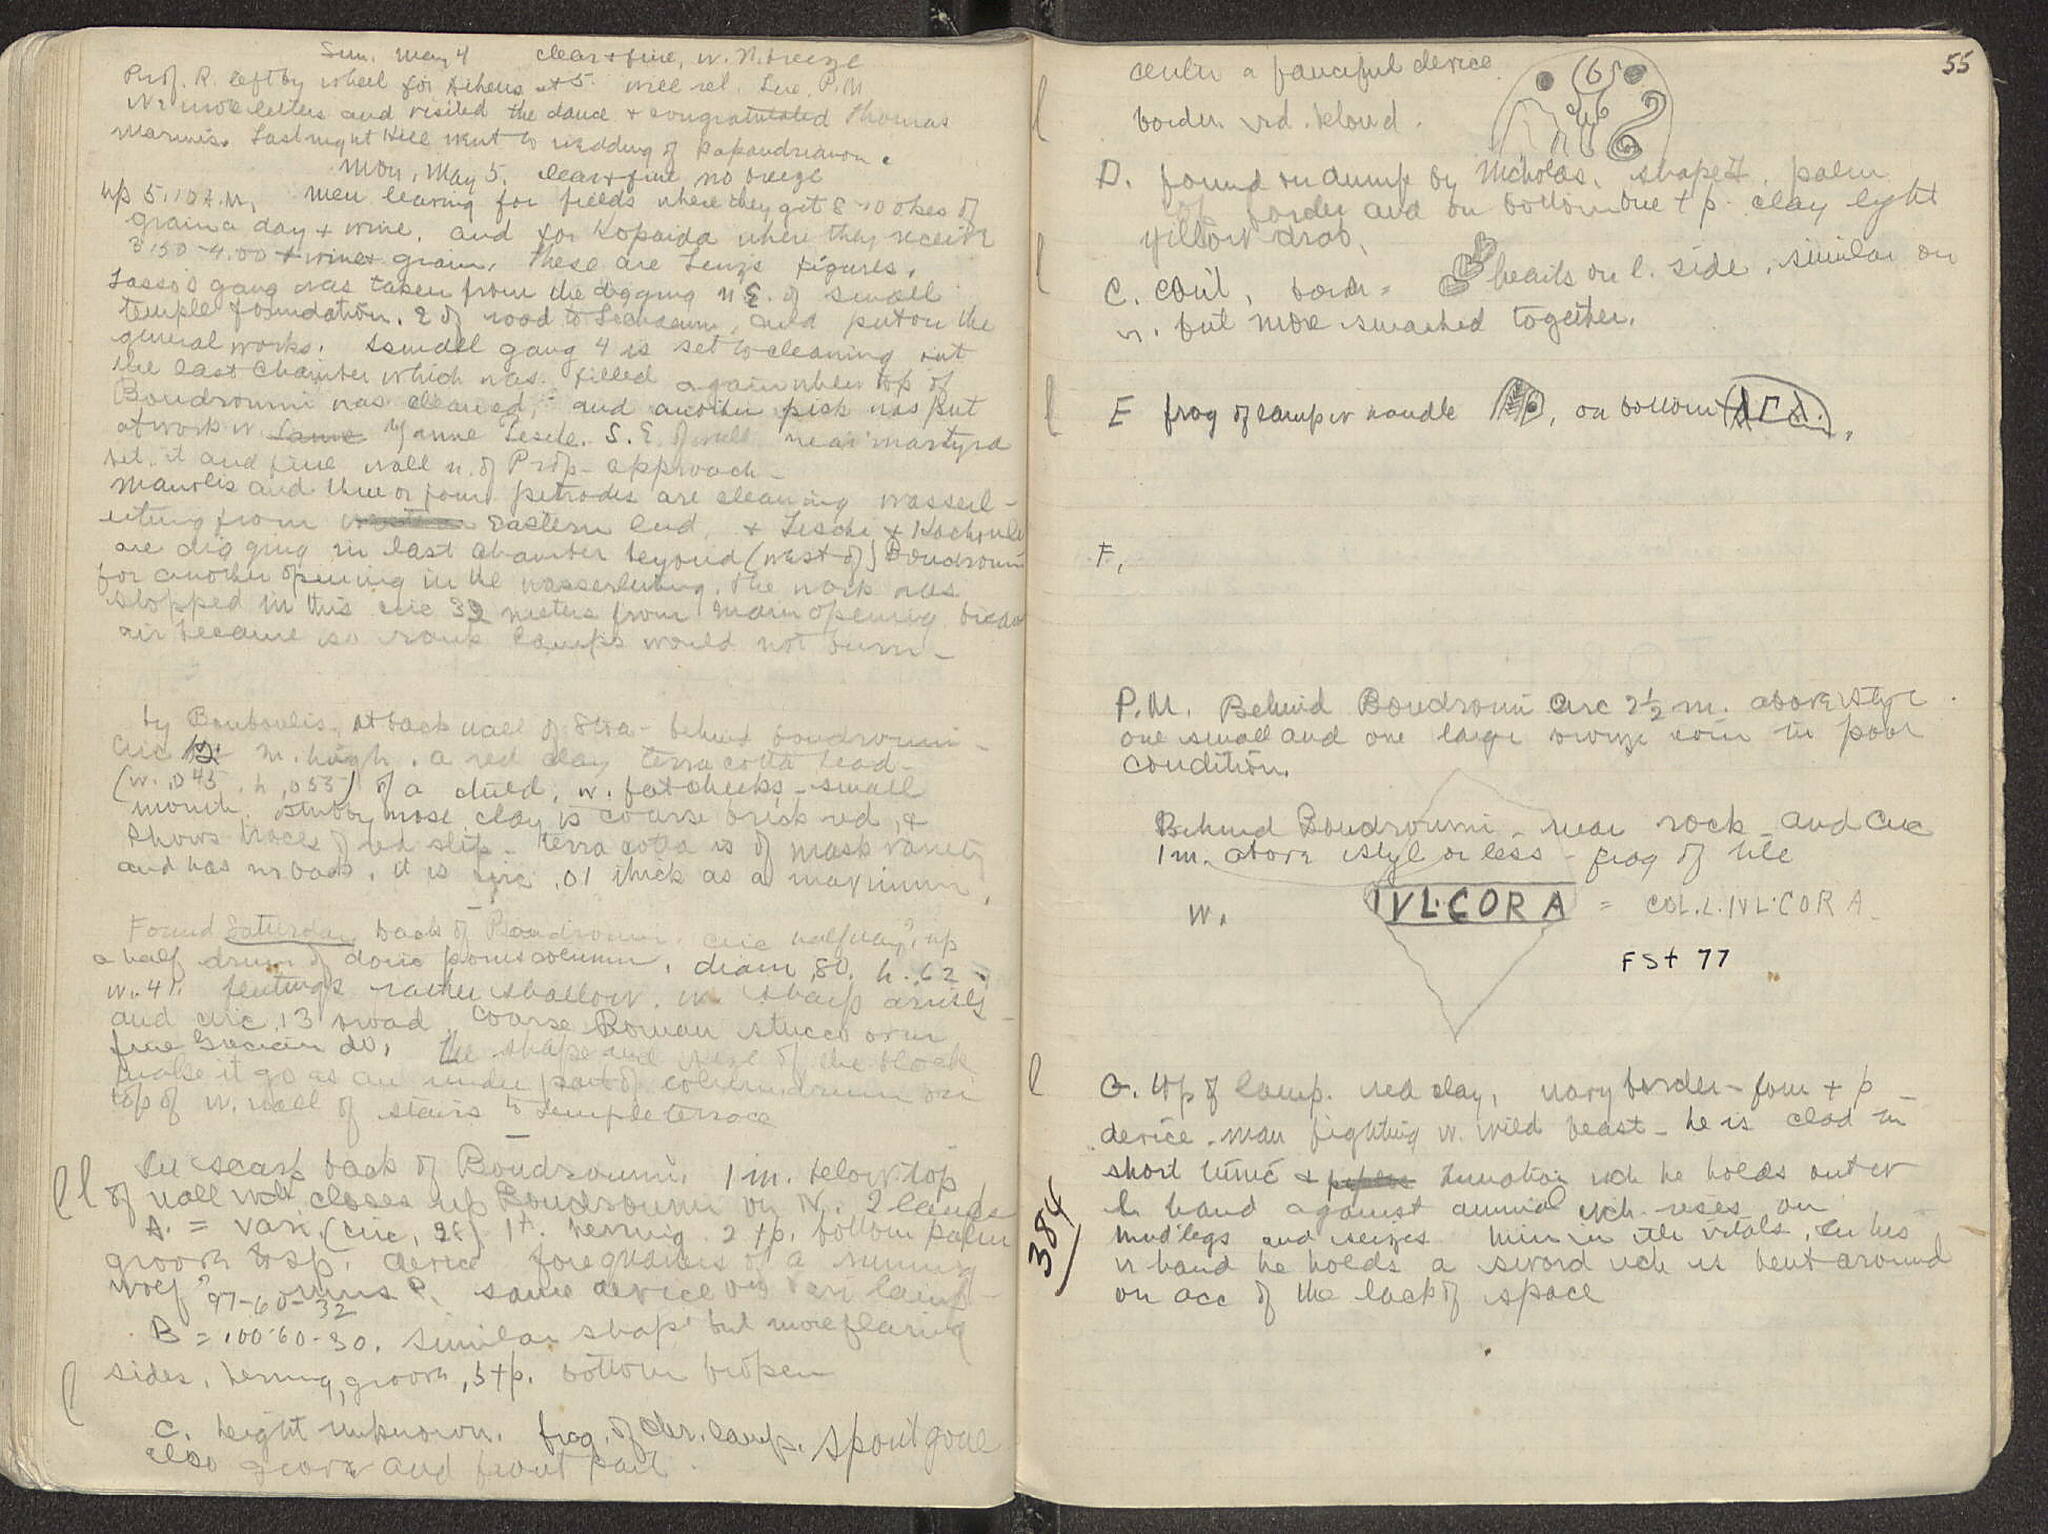 Sun. May 4 clear & fine, w. N. breeze
Prof. R. left by wheel for Athens at 5. will ret. Tue. P.M
Wr. more letters and visited the dance & congratulated Thomas
Last night Hill went to wedding of
Mon, May 5. clear & fine no breeze
up 5.10 A.M. Men leaving for fields where they get 8-10 okes of
grain a day & wine, and for Kopaida where they receive
3.50-4.00 & wine & grain. These are figures.
gang was taken from the digging N.E. of small
temple foundation. E of road to Lechaeum, and put on the
general works. A small gang 4 is set to cleaning out
the last chamber which was filled again when top of
Boudroumi was cleaned, and another pick was put
at work w. S. E. of well near martyra
bet. it and fine wall n. of Prop- approach-
Manolis and three or four are cleaning wasserl-
eitung from eastern end, &
are digging in last chamber beyond (west of) Boudroumi
for another opening in the wasserleitung. The work was
stopped in this circ 32 meters from main opening
air became so rank lamps would not burn-
by at back wall of Stoa- behind boudroumi-
circ m. high. a red clay terra cotta head-
(w. .045, h .055) of a child, w. fat cheeks- small
mouth. stubby nose clay is coarse brick red, &
shows traces of red slip- terra cotta is of mask variety
and has no back, it is circ .01 thick as a maximum.
Found Saturday back of Boudroumi. circ halfway? up
a half drum of doric poros column, diam .80, h. .62
w. .41. flutings rather shallow. w. sharp arrises
and circ .13 broad. Coarse Roman stucco over
fine Grecian do. The shape and size of the block
make it go as an under part of column drum on
top of w. wall of stairs to temple terrace
In scarp back of Boudroumi. 1 m. below top
of wall wch closes up Boudroumi on N. 2 lamps
A. = vari. (circ. 28) herring. 2 + p. bottom palm
groove to sp. device forequarters of a running
wolf? runs r. same device on vari lamp-
97-60-32
B = 100-60-30. similar shape but more flaring
sides. herring, groove, 5 + p. bottom broken
C. height unknown. frag. of chr. lamp. spout gone
also groove and front part.
55
center a fanciful device
border vid. beloud.
D. found on dump by Nicholas. shape palm
border and on bottom one + p. clay light
yellow drab.
C. cont, bord = hearts on l. side. similar on
r. but more smashed together.
E frag of lamp w handle , on bottom
F.
P.M. Behind Boudroumi circ 2½ m. above styl.
one small and one large bronze coin in poor
condition.
Behind Boudroumi - near rock - and circ
1 m. above styl or less - frag of tile
w. IVL·COR A = COL.L.IVL.COR A
FSt 77
G. top of lamp. red clay, border- four + p
device - man fighting w. wild beast - he is clad in
short tunic & wch he holds out w
l. hand against animal wch rises on
hind legs and seizes him in the vitals. In his
r. hand he holds a sword wch is bent around
on acc of the lack of space
384